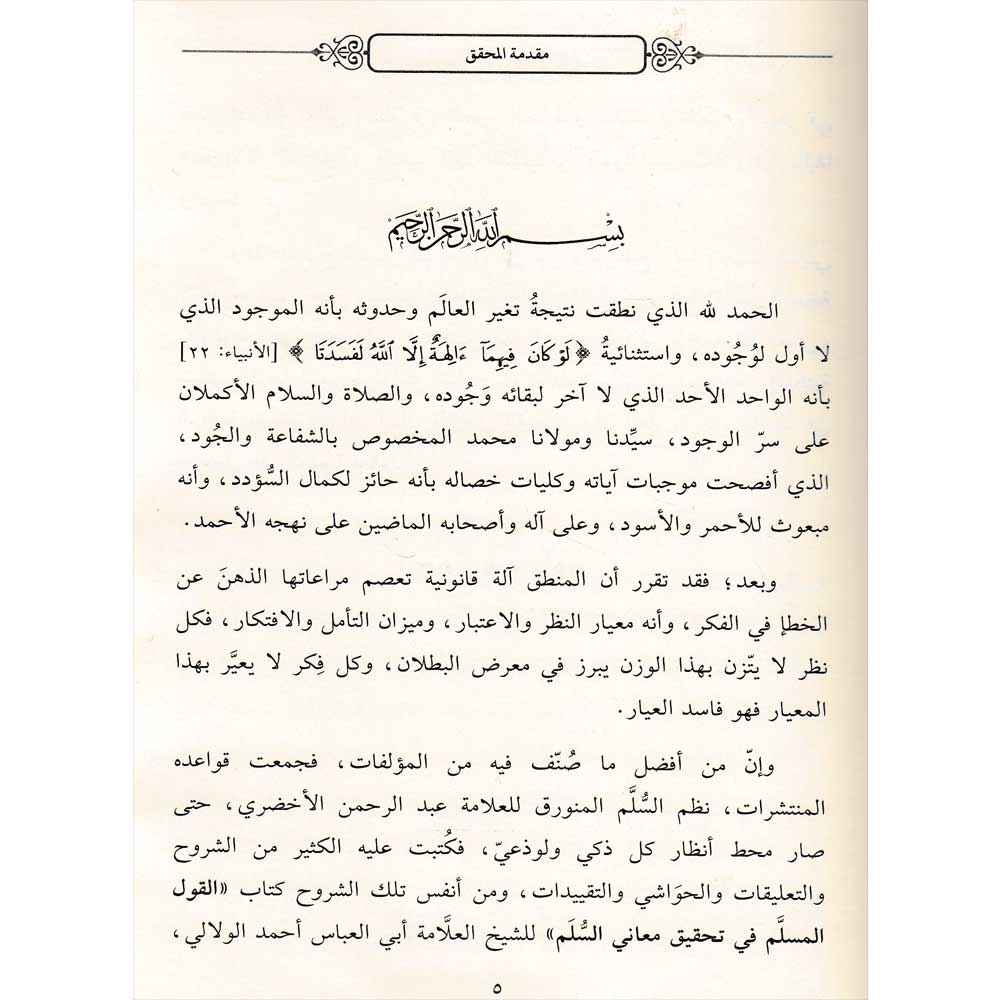 مقدمة المحقق
بِسْمِ اللَّهِ الرَّحْمَنِ الرَّحِيمِ
الحمد لله الذي نطقت نتيجةُ تغير العالَم وحدوثه بأنه الموجود الذي
لا أول لوُجُوده، واستثنائيةُ ﴿لَوْ كَانَ فِيهِمَآ ءَالِهَةٌ إِلَّا اللَّهُ لَفَسَدَتَا﴾ [الأنبياء: ٢٢]
بأنه الواحد الأحد الذي لا آخر لبقائه وَجُوده، والصلاة والسلام الأكملان
على سرّ الوجود، سيِّدنا ومولانا محمد المخصوص بالشفاعة والجُود،
الذي أفصحت موجبات آياته وكليات خصاله بأنه حائز لكمال السُّؤدد، وأنه
مبعوث للأحمر والأسود، وعلى آله وأصحابه الماضين على نهجه الأحمد.
وبعد؛ فقد تقرر أن المنطق آلة قانونية تعصم مراعاتها الذهنَ عن
الخطإ في الفكر، وأنه معيار النظر والاعتبار، وميزان التأمل والافتكار، فكل
نظر لا يتّزن بهذا الوزن يبرز في معرض البطلان، وكل فِكر لا يعيَّر بهذا
المعيار فهو فاسد العيار.
وإنّ من أفضل ما صُنّف فيه من المؤلفات، فجمعت قواعده
المنتشرات، نظم السُّلَّم المنورق للعلامة عبد الرحمن الأخضري، حتى
صار محط أنظار كل ذكي ولوذعيّ، فكُتبت عليه الكثير من الشروح
والتعليقات والحوَاشي والتقييدات، ومن أنفس تلك الشروح كتاب «القول
المسلَّم في تحقيق معاني السُّلَم» للشيخ العلَّامة أبي العباس أحمد الولالي،
٥